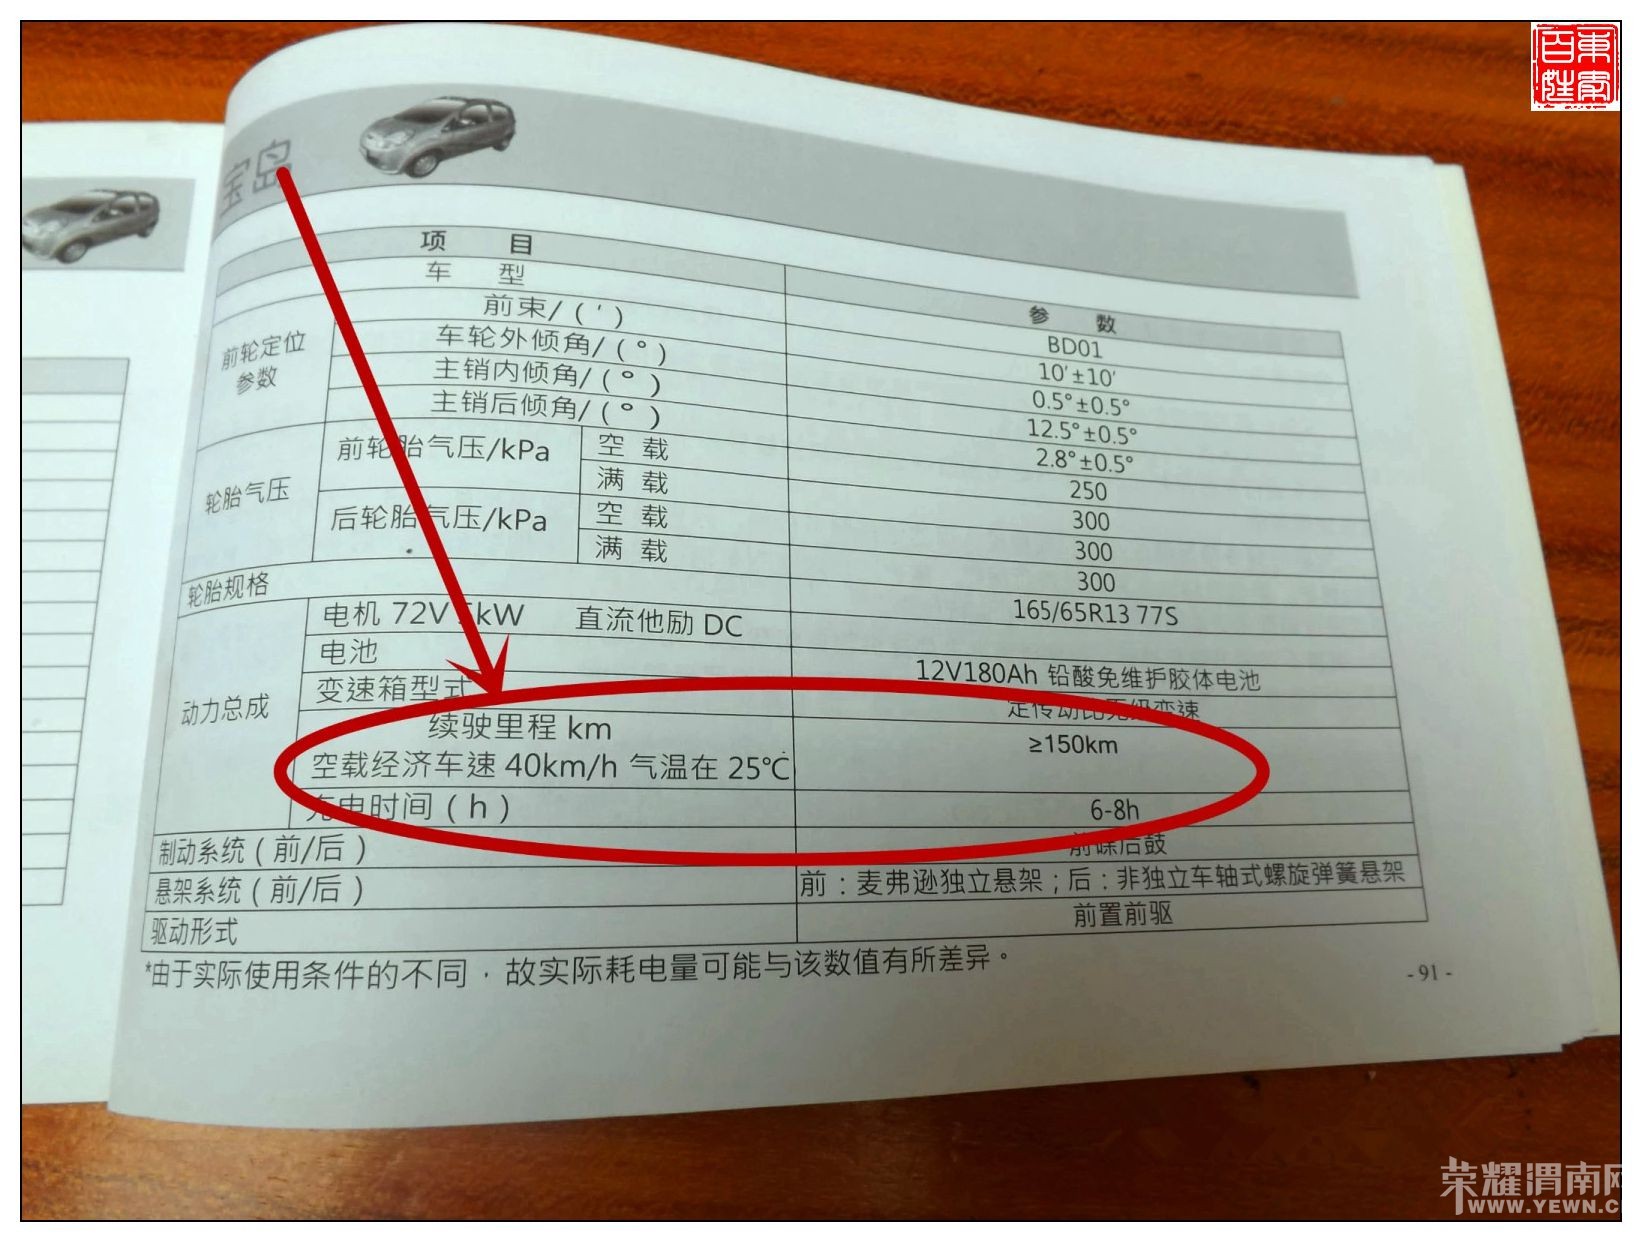 宝岛
项 目
参 数
车 型
BD01
前轮定位参数
前束/(′)
10′±10′
车轮外倾角/(°)
0.5°±0.5°
主销内倾角/(°)
12.5°±0.5°
主销后倾角/(°)
2.8°±0.5°
轮胎气压
前轮胎气压/kPa
空 载
250
满 载
300
后轮胎气压/kPa
空 载
300
满 载
300
轮胎规格
165/65R13 77S
动力总成
电机 72V 5kW 直流他励 DC
电池
12V180Ah 铅酸免维护胶体电池
变速箱型式
定传动比无级变速
续驶里程 km
空载经济车速 40km/h 气温在 25℃
≥150km
充电时间(h)
6-8h
制动系统(前/后)
前碟后鼓
悬架系统(前/后)
前：麦弗逊独立悬架；后：非独立车轴式螺旋弹簧悬架
驱动形式
前置前驱
*由于实际使用条件的不同，故实际耗电量可能与该数值有所差异。
- 91 -
荣耀渭南网
WWW.YEWN.C